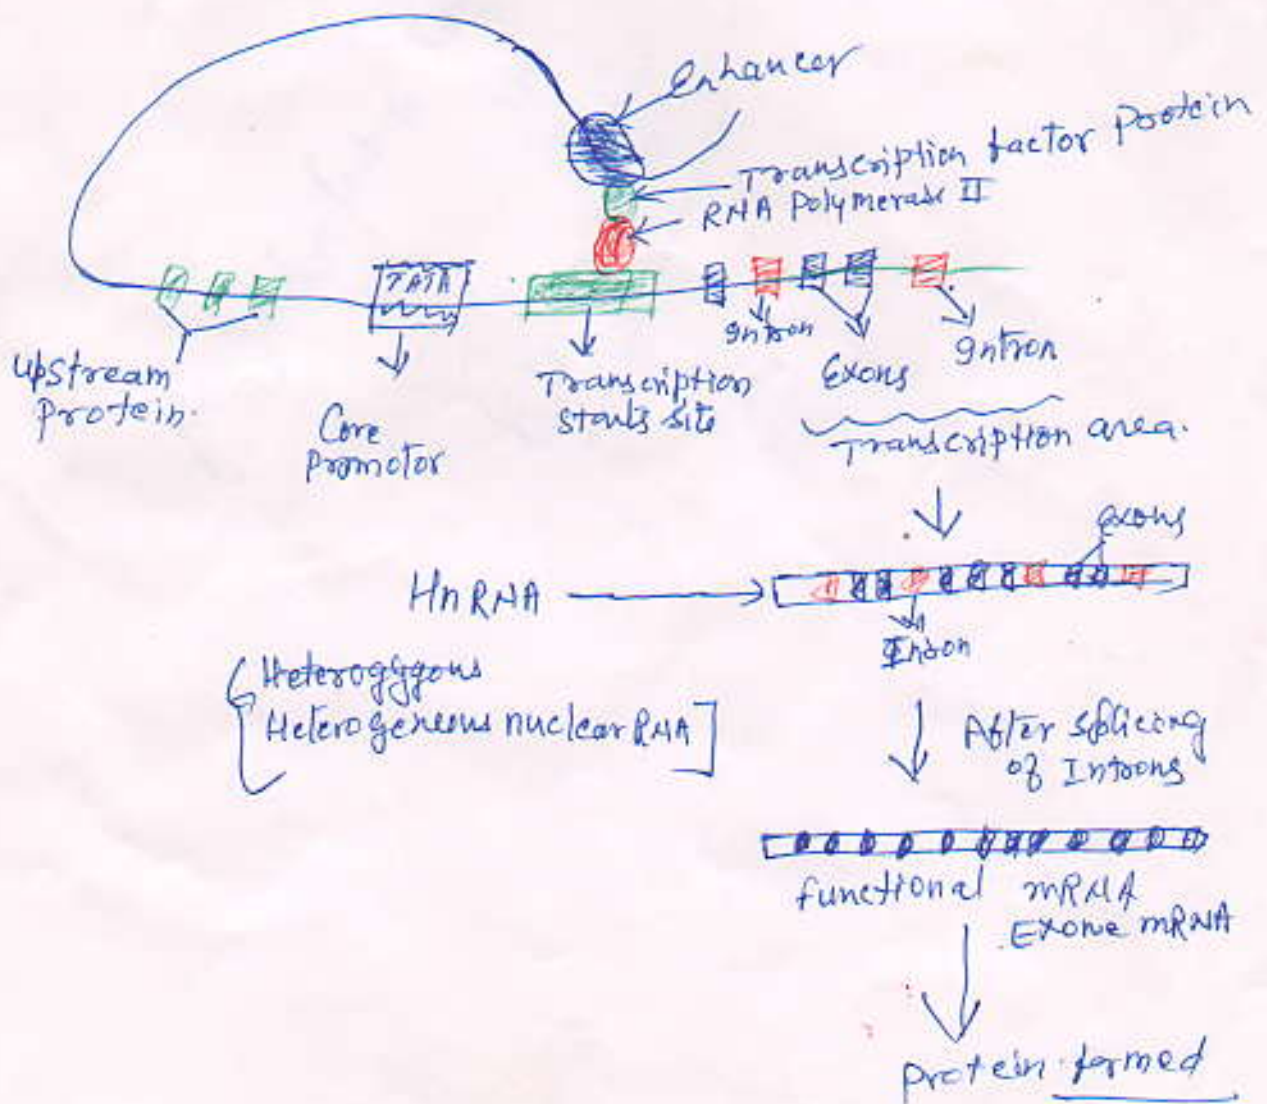 Enhancer
Transcription factor Protein
RNA Polymerase II
TATA
Upstream
Protein.
Core
Promotor
Transcription
Starts site
Intron
Exons
Intron
Transcription area.
exons
HnRNA
Intron
Heterogygous
Heterogeneous nuclear RNA
After splicing
of Introns
functional mRNA
Exone mRNA
Protein formed